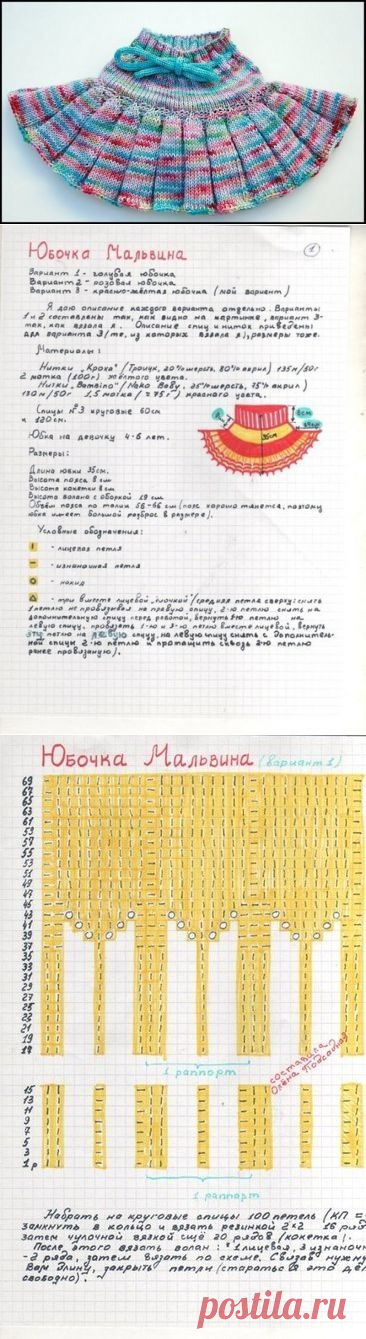 Юбочка Мальвина
1
Вариант 1 - голубая юбочка
Вариант 2 - розовая юбочка
Вариант 3 - красно-жёлтая юбочка (мой вариант)
Я даю описание каждого варианта отдельно. Варианты
1 и 2 составлены так, как видно на картинке, вариант 3-
так, как вязала я. Описание спиц и ниток приведены
для варианта 3 (те, из которых вязала я), размеры тоже.
Материалы:
Нитки "Кроха" (Троицк, 20% шерсть, 80% акрил) 135м/50г
2 мотка (100г) жёлтого цвета.
Нитки "Bambino" (Nako Baby, 25% шерсть, 75% акрил)
130м/50г 1,5 мотка (≈75г) красного цвета.
Спицы №3 круговые 60см
и 120см.
8см
35см
Юбка на девочку 4-6 лет.
Размеры:
Длина юбки 35см.
Высота пояса 8см
Высота кокетки 8см
Высота волана с оборкой 19см
Объём пояса по талии 56-66см (пояс хорошо тянется, поэтому
юбка имеет большой разброс в размере).
Условные обозначения:
- лицевая петля
- изнаночная петля
- накид
- три вместе лицевой "ёлочкой" (средняя петля сверху: снять
1 петлю не провязывая на правую спицу, 2-ю петлю снять на
дополнительную спицу перед работой, вернуть петлю на
левую спицу, провязать 1-ю и 3-ю петлю вместе лицевой, вернуть
эту петлю на левую спицу, на левую спицу снять с дополнитель-
ной спицы 2-ю петлю и протащить сквозь 2-ю петлю
ранее провязанную).
Юбочка Мальвина (вариант 1)
69
67
65
63
61
59
57
55
53
51
49
47
45
43
41
39
37
35
33
31
29
27
25
23
21
19
18
1 раппорт
составила
Олёна
15
13
11
9
7
5
3
1р
1 раппорт
Набрать на круговые спицы 100 петель (КП =
замкнуть в кольцо и вязать резинкой 2×2 16 ряд
затем чулочной вязкой ещё 20 рядов (кокетка).
После этого вязать волан: *1 лицевая, 3 изнаноч
-2 ряда, затем вязать по схеме. Связав нужну
Вам длину, закрыть петли (старатьс а это дел
свободно).
postila.ru